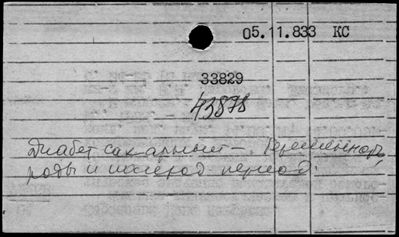 05.11.833 КС
33829
43878
Диабет сахарный — беременность,
роды и послерод. период.